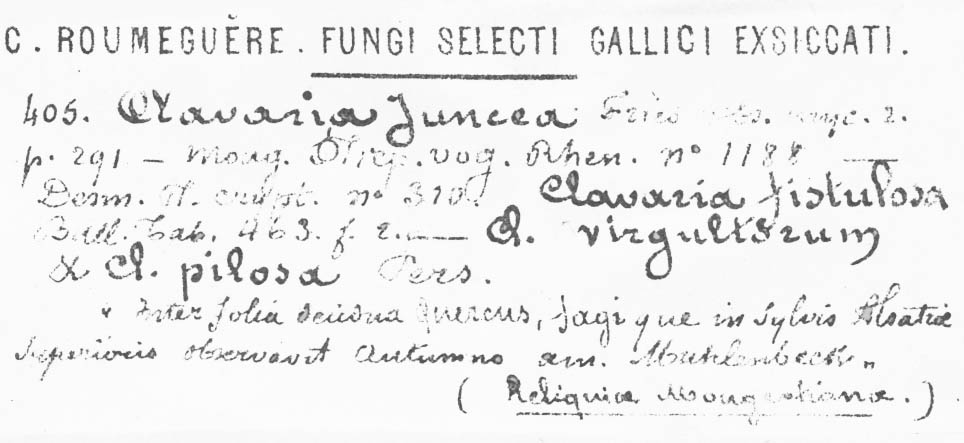 C. ROUMEGUÈRE. FUNGI SELECTI GALLICI EXSICCATI.
405. Clavaria Juncea Fries obs. myc. 2.
p. 291 — Moug. Stirp. vog. Rhen. n° 1188 —
Desm. Pl. crypt. n° 310. Clavaria fistulosa
Bull. Tab. 463. f. 2. — Cl. virgultorum
& Cl. pilosa Pers.
" Inter folia decidua Quercus, fagi que in sylvis Alsatiæ
superioris observavit Autumno am. Muhlenbeck „
( Reliquiæ Mougeotianæ. )